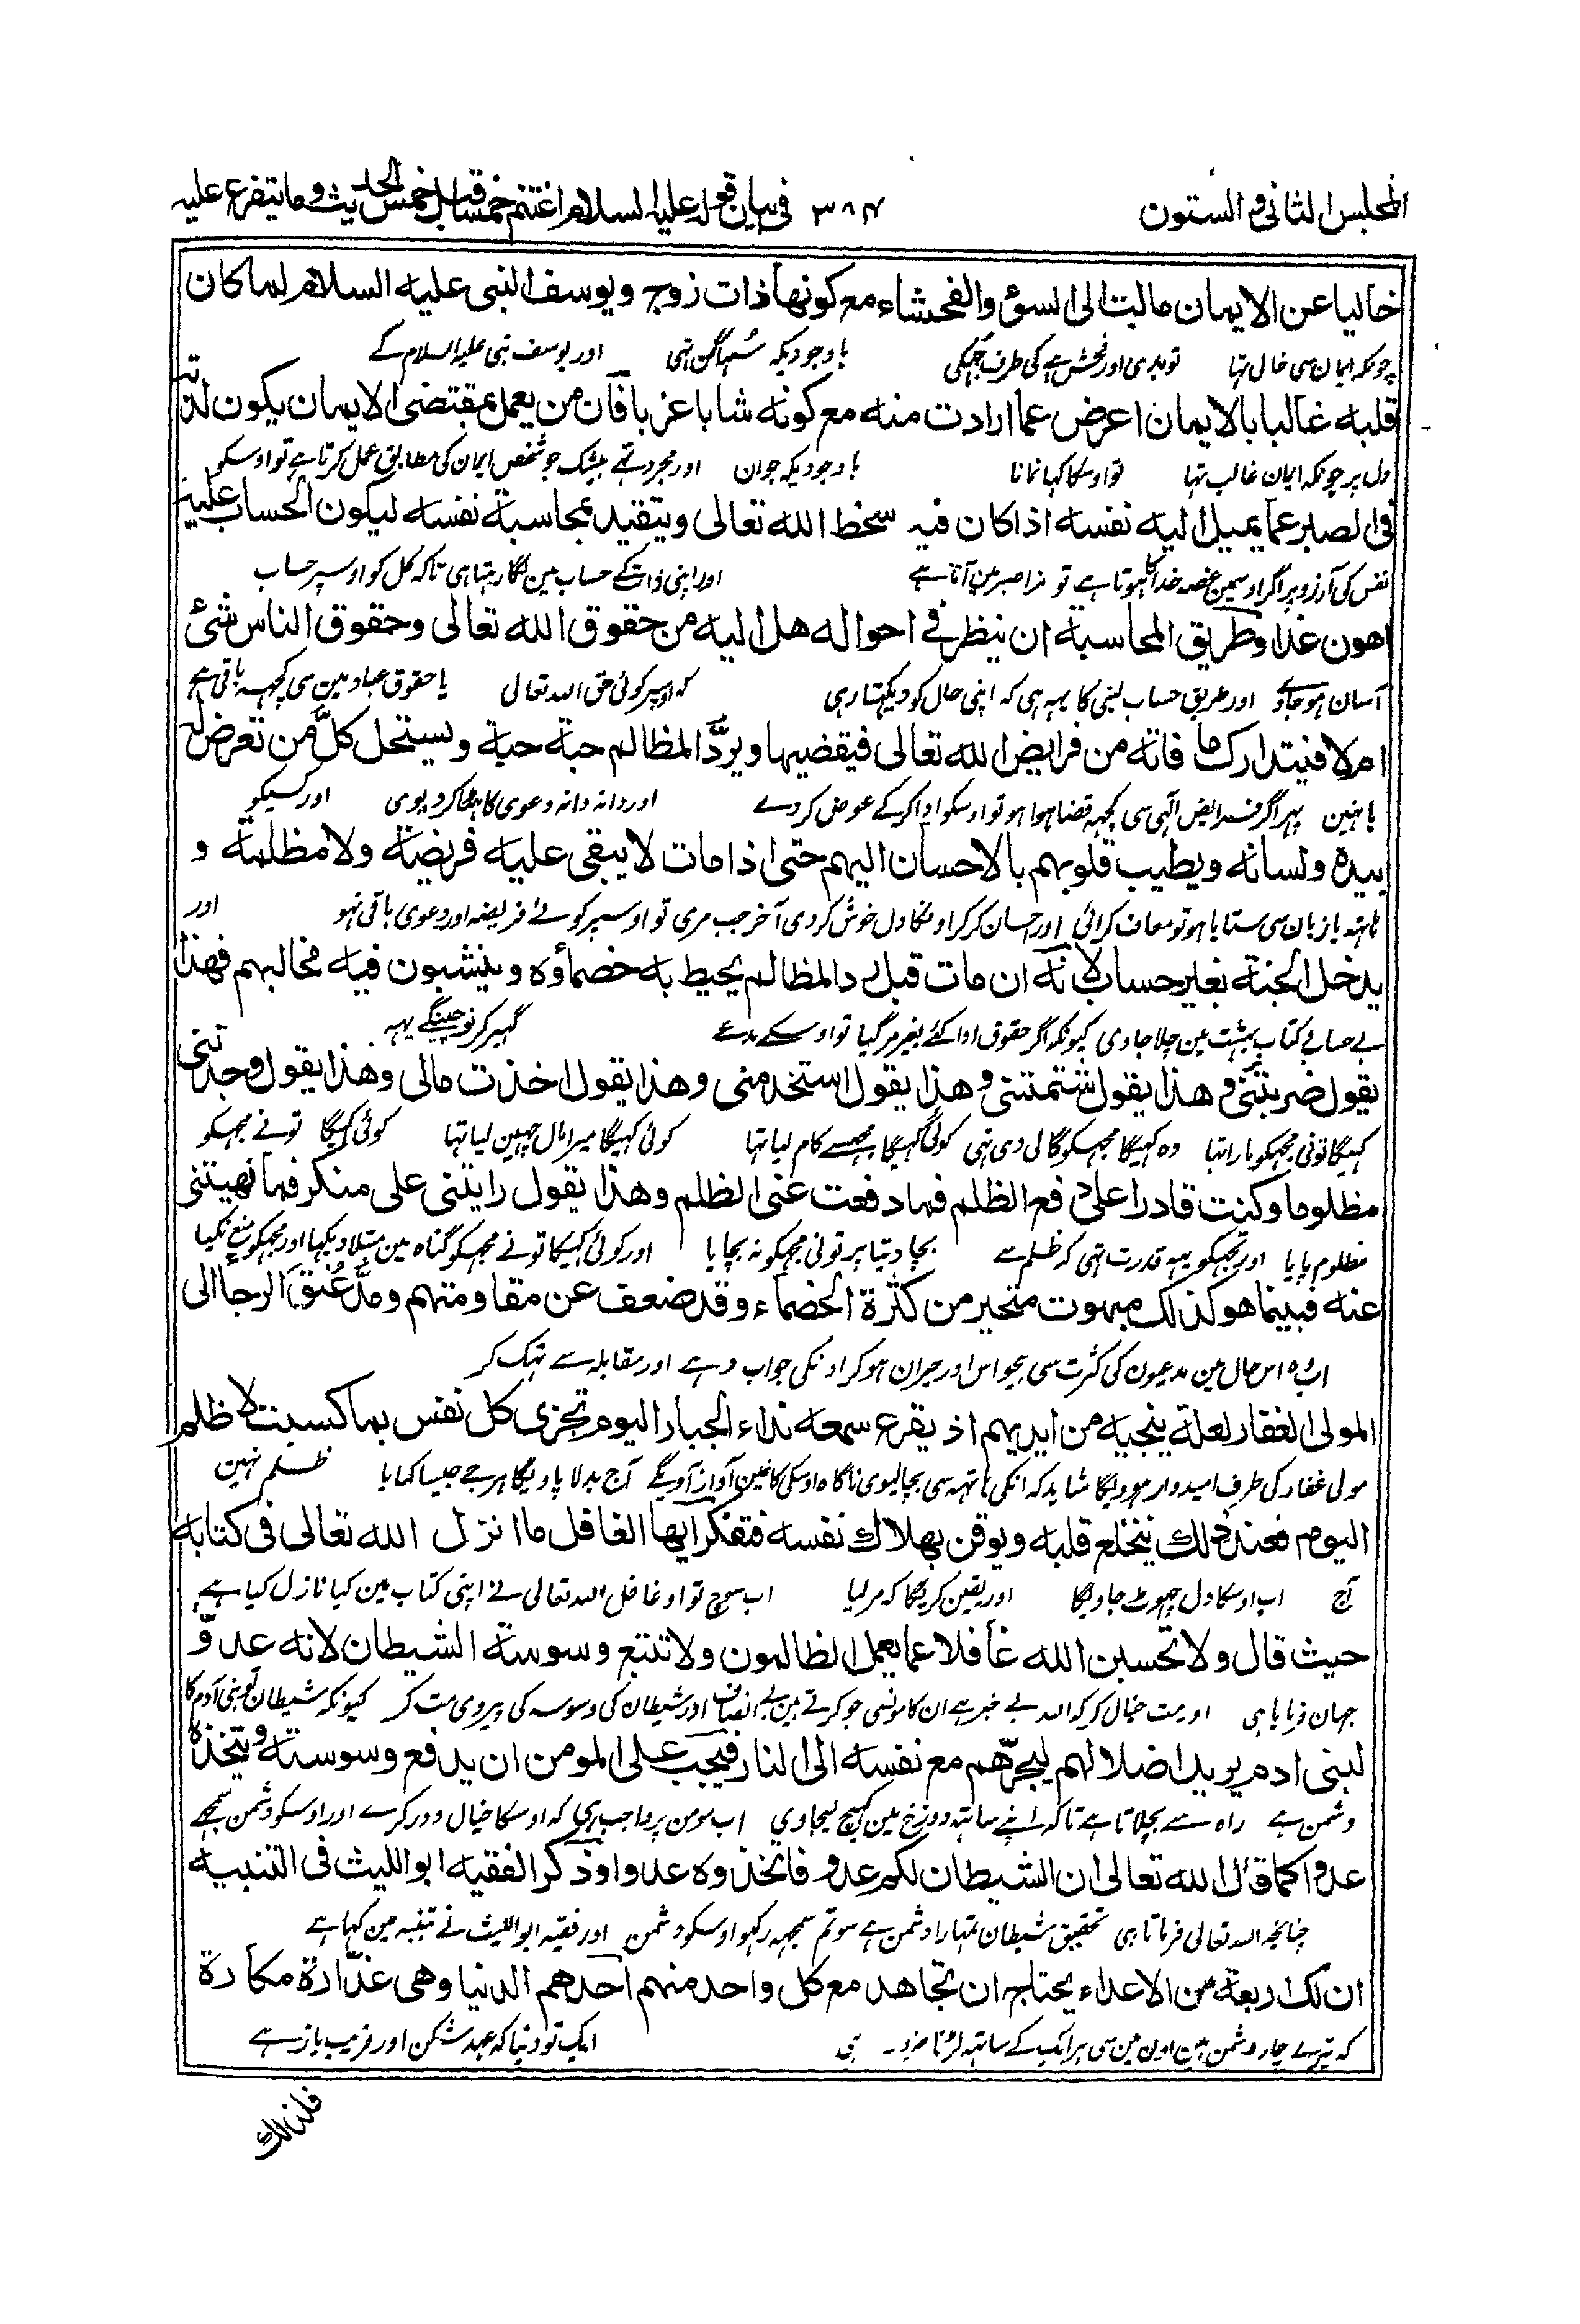 المجلس الثانی و الستون ۳۸۴ فی بیان قوله علیه السلام اغتنم خمسا قبل خمس الحدیث وما یتفرع علیه
خالیا عن الایمان مالت الی السوء والفحشاء مع کونها ذات زوج ویوسف النبی علیه السلام لما کان
چونکہ ایمان سی خالی تہا تو بدی اور فحش ہے کی طرف جھکی باوجودیکہ سُہاگن تہی اور یوسف نبی علیہ السلام کے
قلبه غالبا بالایمان اعرض عما ارادت منه مع کونه شابا عزبا فان من یعمل بمقتضی الایمان یکون لذته
دل پر چونکہ ایمان غالب تہا تو اوسکا کہا نمانا باوجودیکہ جوان اور مجرد تہے بیشک جو شخص ایمان کی مطابق عمل کرتا ہے تو اوسکو
فی الصبر عما یمیل الیه نفسه اذا کان فیه سخط الله تعالی ویتقید بمحاسبة نفسه لیکون الحساب علیه
نفس کی آرزو پر اگر اوسمین غصہ خدا کا ہوتا ہے تو مزا صبر مین آتا ہے اور اپنی ذات کے حساب مین لگا رہتا ہی تاکہ کل کو اوسپر حساب
اهون غدا وطریق المحاسبة ان ینظر فی احواله هل الیه من حقوق الله تعالی وحقوق الناس شئ
آسان ہو جاوے اور طریق حساب لینی کا یہہ ہی کہ اپنی حال کو دیکہتا رہی کہ اوسپر کوئی حق اللہ تعالی یا حقوق عباد مین سی کچہہ باقی ہے
ام لا فیتدارک ما فاته من فرایض الله تعالی فیقضیها ویردّ المظالم حبة حبة ویستحل کلَّ من تعرض له
یا نہین پہر اگر فرایض الٰہی سی کچہہ قضا ہوا ہو تو اوسکو ادا کر کے عوض کردے اور دانہ دانہ دعوی کا عطا کر دیوی اور کسیکو
بیده ولسانه ویطیب قلوبهم بالاحسان الیهم حتی اذا مات لا یبقی علیه فریضة ولا مظلمة و
ہاتہہ یا زبان سی ستایا ہو تو معاف کرائی اور احسان کر کر اونکا دل خوش کردی آخر جب مری تو اوسپر کوئے فریضہ اور دعوی باقی نہو اور
یدخل الجنة بغیر حساب لانه ان مات قبل رد المظالم یحیط به خصماؤه وینشبون فیه مخالبهم فهذا
بے حساب کتاب بہشت مین چلا جاوی کیونکہ اگر حقوق ادا کئے بغیر مر گیا تو اوسکے مدعے گہیر کر نوچینگے یہہ
یقول ضربتنی وهذا یقول شتمتنی وهذا یقول استخدمنی وهذا یقول اخذت مالی وهذا یقول وجدتنی
کہیگا تونی مجہکو مارا تہا وہ کہیگا مجہکو گالی دی تہی کوئی کہیگا مجہسے کام لیا تہا کوئی کہیگا میرا مال چہین لیا تہا کوئی کہیگا تونے مجہکو
مظلوما وکنت قادرا علی دفع الظلم فما دفعت عنی الظلم وهذا یقول رایتنی علی منکر فما نهیتنی
مظلوم پایا اور تجہکو یہہ قدرت تہی کہ ظلم سے بچا دیتا پر تونی مجہکو نہ بچایا اور کوئی کہیگا تونے مجہکو گناہ مین مبتلا دیکہا اور مجہکو منع نکیا
عنه فبینما هو کذلک مبهوت متحیر من کثرة الخصماء وقد ضعف عن مقاومتهم ومدَّ عُنُقَ الرجا الی
اب وہ اس حال مین مدعیون کی کثرت سی بیحواس اور حیران ہو کر اونکی جواب دہے اور مقابلہ سے تہک کر
المولی الغفار لعله ینجیه من ایدیهم اذ یقرع سمعه نداء الجبار الیوم تجزی کل نفس بما کسبت لا ظلم
مولی غفار کی طرف امیدوار ہوویگا شاید کہ انکی ہاتہہ سی بچا لیوی ناگاہ اوسکی کانمین آواز آویگے آج بدلا پاویگا ہر جے جیسا کمایا ظلم نہین
الیوم فعند ذلک ینخلع قلبه ویوقن بهلاک نفسه فتفکر ایها الغافل ما انزل الله تعالی فی کتابه
آج اب اوسکا دل چہوٹ جاویگا اور یقین کریگا کہ مر لیا اب سوچ تو او غافل اللہ تعالی نے اپنی کتاب مین کیا نازل کیا ہے
حیث قال ولا تحسبن الله غافلا عما یعمل الظالمون ولا تتبع وسوسة الشیطان لانه عدوّ
جہان فرمایا ہی اور مت خیال کر کہ اللہ بے خبر ہے ان کامونسی جو کرتے ہین بے انصاف اور شیطان کی وسوسہ کی پیروی مت کر کیونکہ شیطان تو بنی آدم کا
لبنی ادم یرید اضلالهم لیجرّهم مع نفسه الی النار فیجب علی المومن ان یدفع وسوسته ویتخذه
دشمن ہے راہ سے بچلاتا ہے تاکہ اپنے ساتہہ دوزخ مین کہینچ لیجاوی اب مومن پر واجب ہی کہ اوسکا خیال دور کرے اور اوسکو دشمن سمجھے
عدوا کما قال الله تعالی ان الشیطان لکم عدو فاتخذوه عدوا وذکر الفقیه ابو اللیث فی التنبیه
چنانچہ اللہ تعالی فرماتا ہی تحقیق شیطان تمہارا دشمن ہے سو تم سمجہہ رکہو اوسکو دشمن اور فقیہ ابو اللیث نے تنبیہ مین کہا ہے
ان لک اربعة من الاعداء یحتاج ان تجاهد مع کل واحد منهم احدهم الدنیا وهی غدّارة مکارة
کہ تیرے چار دشمن ہین اون مین سی ہر ایک کے ساتہہ لڑنا ضرور ہی ایک تو دنیا کہ عہد شکن اور فریب باز ہے
فلذلک